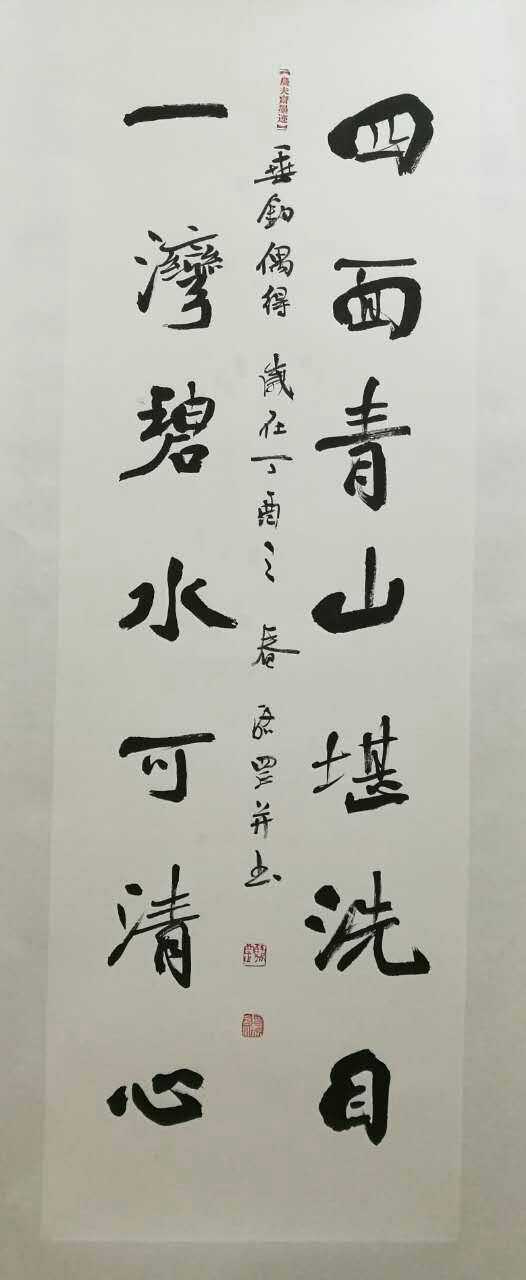 四面青山堪洗目
【農夫齋墨迹】
垂釣偶得 歲在丁酉之 春 並書
一灣碧水可清心